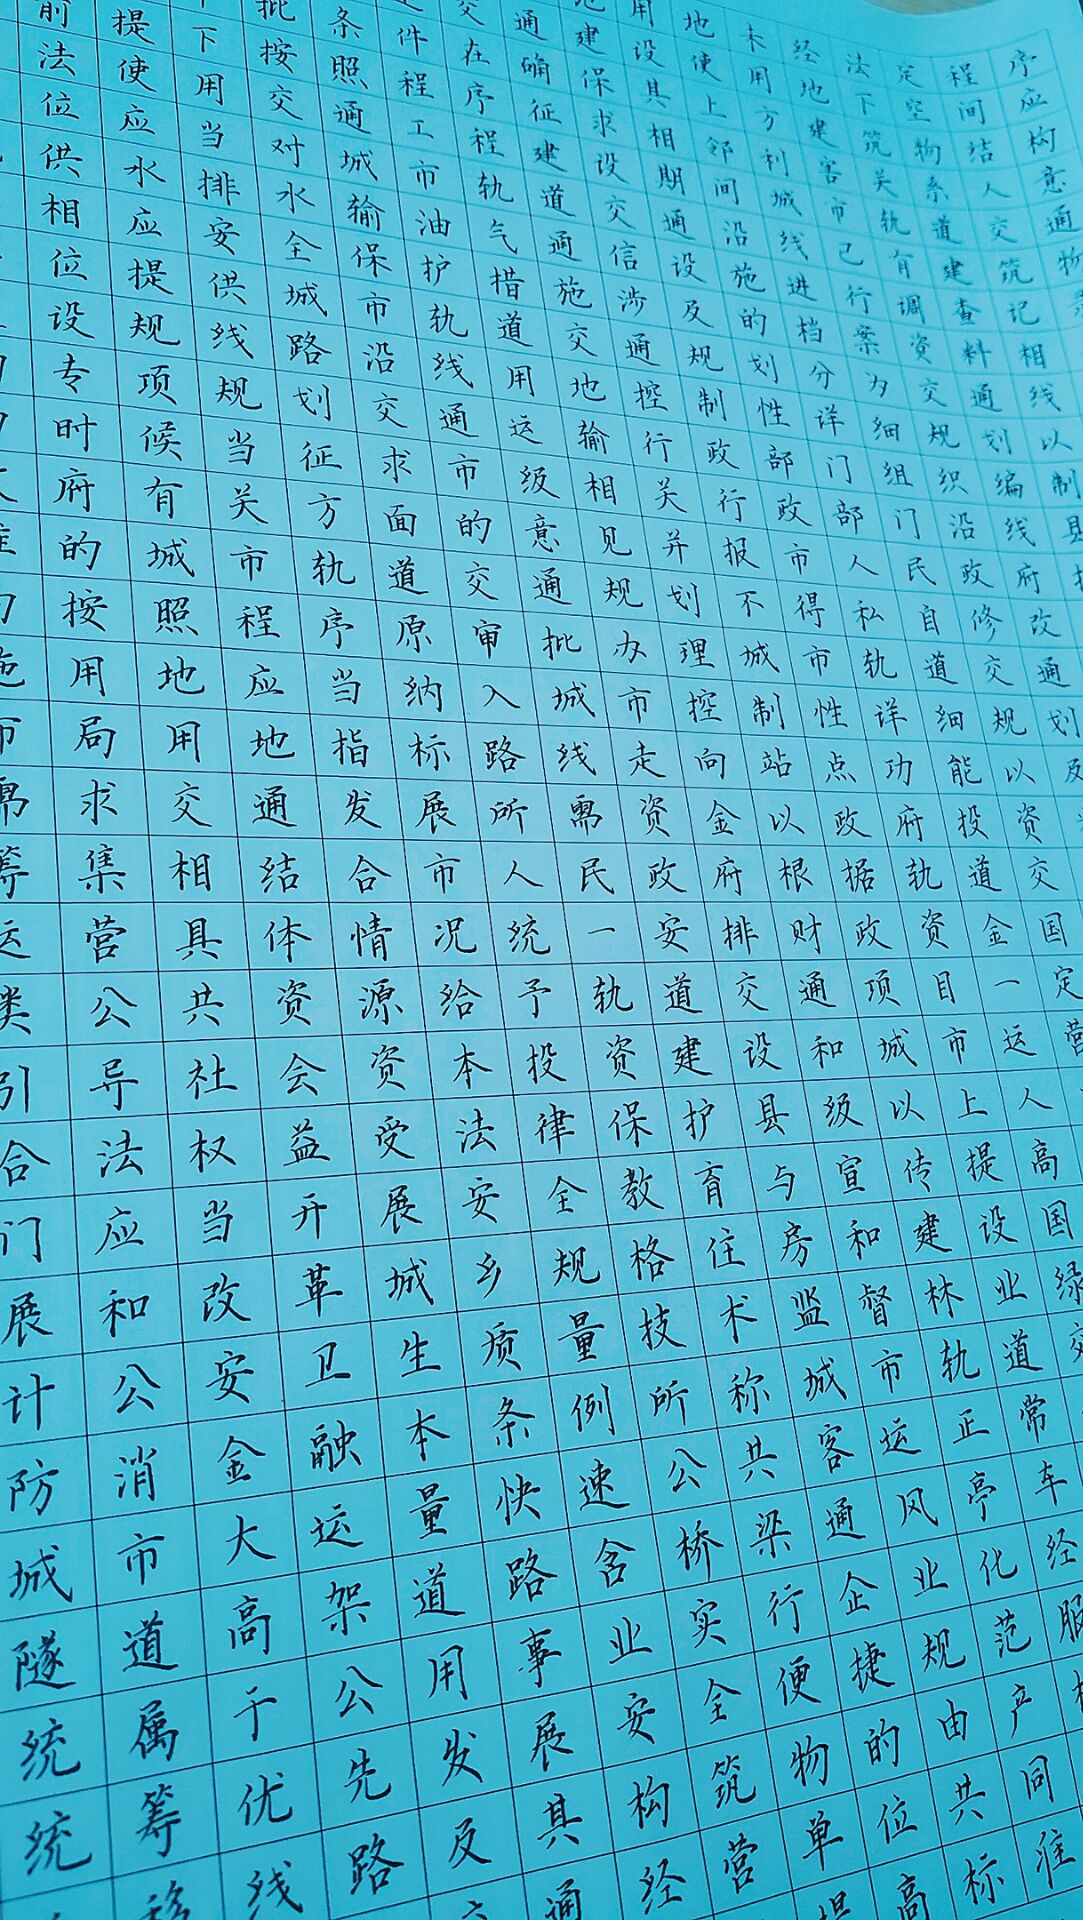 用地未经法定程序
交通建设使用地下空间应
批条件在确保其上方建筑物结构
前提下按照程序征求相邻利害关系人意
法使用交通工程建设期间城市轨道交通
位应当对城市轨道交通沿线已有建筑物
供水排水输油气通信设施进行调查记
相应安全保护措施涉及的档案资料相
位提供城市轨道交通规划分为交通线
设规线路沿线用地控制性详细规划以
专项规划交通运输行政部门组织编制
时候当征求市级相关行政部门沿线县
府有关方面的意见并报市人民政府
的城市轨道交通规划不得私自修改
按照程序原审批办理城市轨道交通
施用地应当纳入城市控制性详细规划
市局用地指标路线走向站点功能以及
需求交通发展所需资金以政府投资
筹集相结合市人民政府根据轨道交
运营具体情况统一安排财政资金国
类公共资源给予轨道交通项目一定
引导社会资本投资建设和城市运营
合法权益受法律保护县级以上人
门应当开展安全教育与宣传提高
展和改革城乡规格住房和建设国
计公安卫生质量技术监督林业绿
防消金融本条例所称城市轨道交
城市大运量快速公共客运正常
隧道高架道路含桥梁通风亭车
统属于公用事业实行企业化经
统筹优先发展安全便捷规范服
移线路及其构筑物的由产
通经营单位共同
提高标准